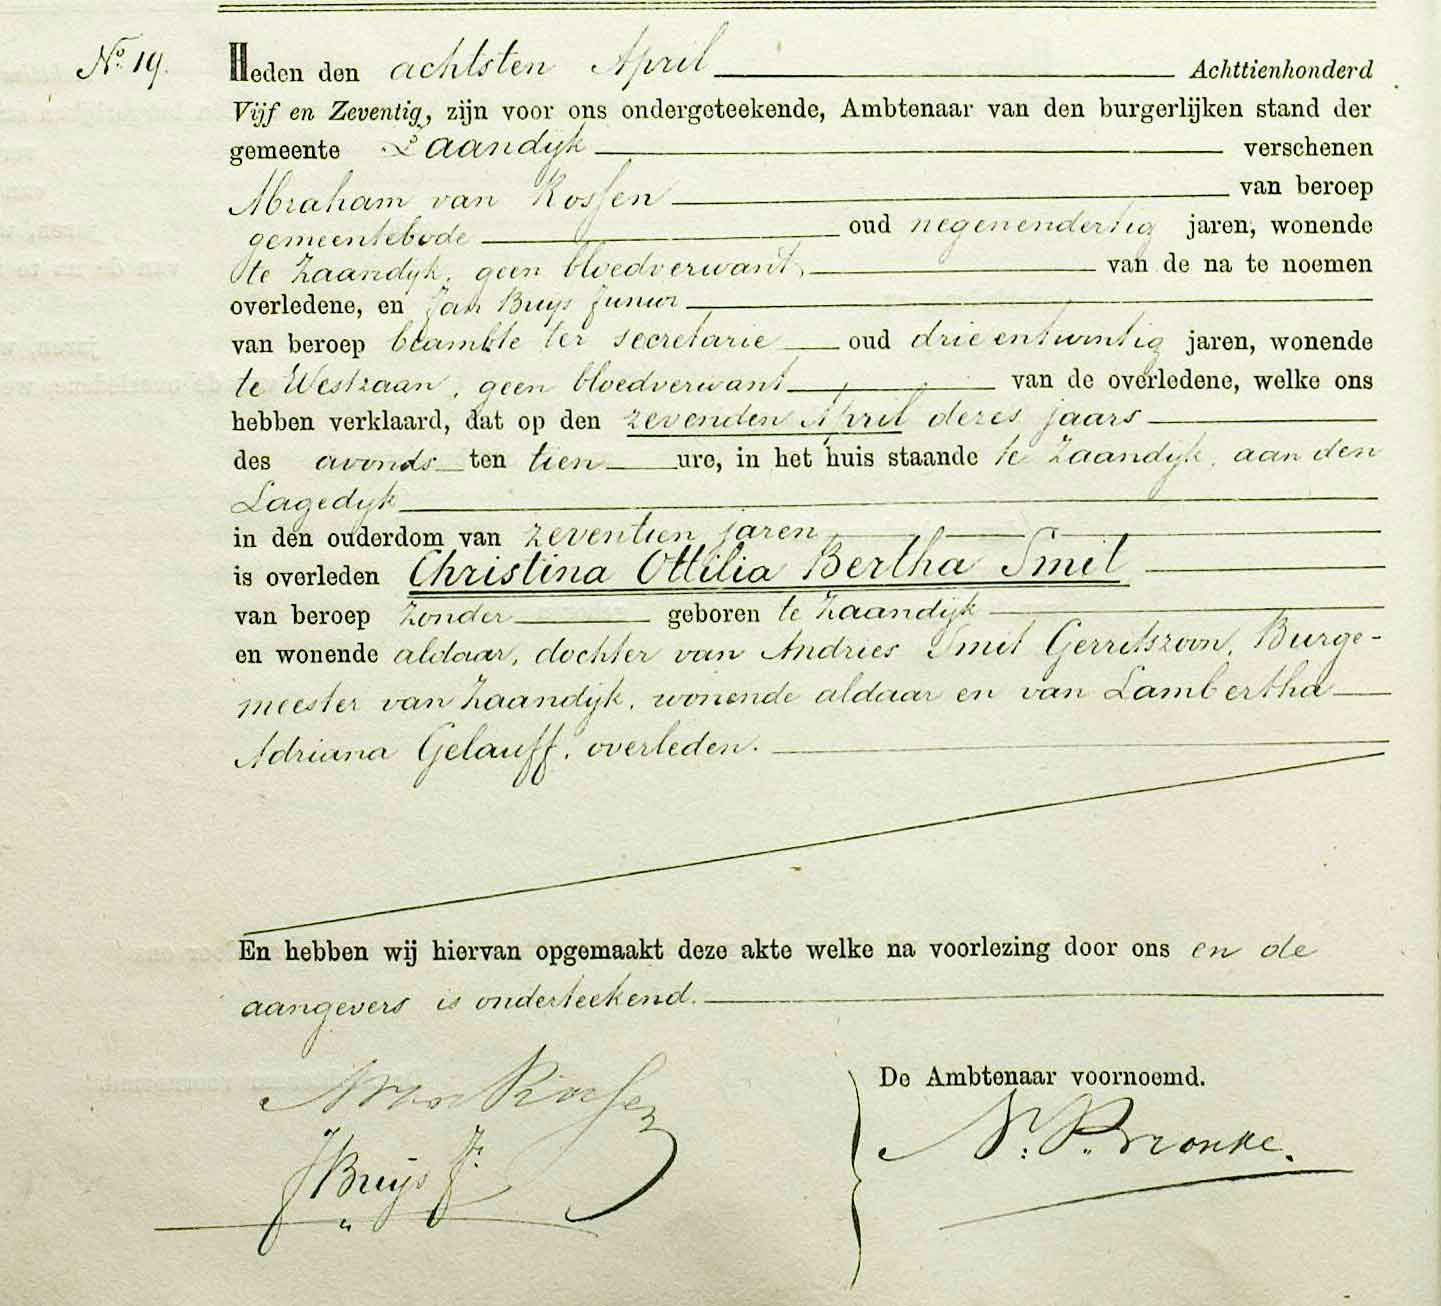 No. 19.
Heden den achtsten April Achttienhonderd
Vijf en Zeventig, zijn voor ons ondergeteekende, Ambtenaar van den burgerlijken stand der
gemeente Zaandijk verschenen
Abraham van Rossen van beroep
gemeentebode oud negenendertig jaren, wonende
te Zaandijk, geen bloedverwant, van de na te noemen
overledene, en Jan Buys Junior
van beroep beambte ter secretarie oud drieentwintig jaren, wonende
te Westzaan, geen bloedverwant van de overledene, welke ons
hebben verklaard, dat op den zevenden April dezes jaars
des avonds ten tien ure, in het huis staande te Zaandijk, aan den
Lagedijk
in den ouderdom van zeventien jaren
is overleden Christina Ottilia Bertha Smit
van beroep zonder geboren te Zaandijk
en wonende aldaar, dochter van Andries Smit Gerritszoon, Burge-
meester van Zaandijk, wonende aldaar en van Lambertha
Adriana Gelauff, overleden.
En hebben wij hiervan opgemaakt deze akte welke na voorlezing door ons en de
aangevers is onderteekend.
A van Rossen
J Buys Jr.
De Ambtenaar voornoemd.